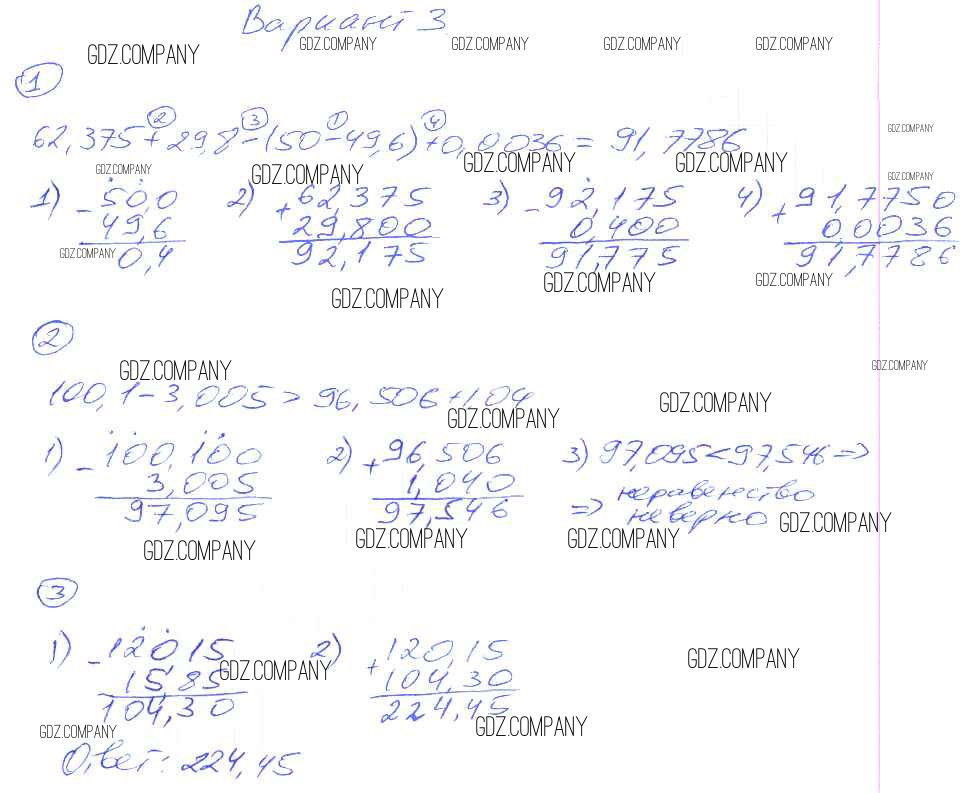 Вариант 3
GDZ.COMPANY GDZ.COMPANY GDZ.COMPANY GDZ.COMPANY GDZ.COMPANY
1
2 3 1 4
62,375+29,8-(50-49,6)+0,0036=91,7786
GDZ.COMPANY
GDZ.COMPANY GDZ.COMPANY GDZ.COMPANY GDZ.COMPANY
GDZ.COMPANY
1) -50,0 2) +62,375 3) -92,175 4) +91,7750
49,6 29,800 0,400 0,0036
0,4 92,175 91,775 91,7786
GDZ.COMPANY GDZ.COMPANY GDZ.COMPANY
GDZ.COMPANY
2
GDZ.COMPANY GDZ.COMPANY
100,1-3,005>96,506+1,04
GDZ.COMPANY GDZ.COMPANY
1) -100,100 2) +96,506 3) 97,095<97,546=>
3,005 1,040 => неравенство
97,095 97,546 неверно
GDZ.COMPANY
GDZ.COMPANY GDZ.COMPANY GDZ.COMPANY
3
1) -120,15 2) +120,15
15,85 104,30
104,30 224,45
GDZ.COMPANY GDZ.COMPANY
GDZ.COMPANY GDZ.COMPANY
Ответ: 224,45